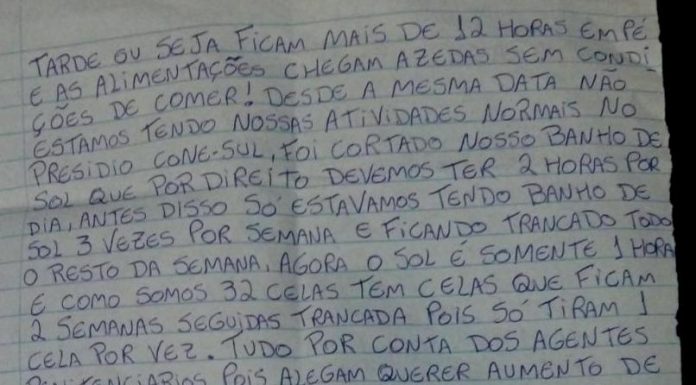 TARDE OU SEJA FICAM MAIS DE 12 HORAS EM PÉ
E AS ALIMENTAÇÕES CHEGAM AZEDAS SEM CONDI
ÇÕES DE COMER! DESDE A MESMA DATA NÃO
ESTAMOS TENDO NOSSAS ATIVIDADES NORMAIS NO
PRESIDIO CONE-SUL, FOI CORTADO NOSSO BANHO DE
SOL QUE POR DIREITO DEVEMOS TER 2 HORAS POR
DIA, ANTES DISSO SÓ ESTAVAMOS TENDO BANHO DE
SOL 3 VEZES POR SEMANA E FICANDO TRANCADO TODO
O RESTO DA SEMANA, AGORA O SOL É SOMENTE 1 HORA
E COMO SOMOS 32 CELAS TEM CELAS QUE FICAM
2 SEMANAS SEGUIDAS TRANCADA POIS SÓ TIRAM 1
CELA POR VEZ. TUDO POR CONTA DOS AGENTES
PENITENCIARIOS POIS ALEGAM QUERER AUMENTO DE